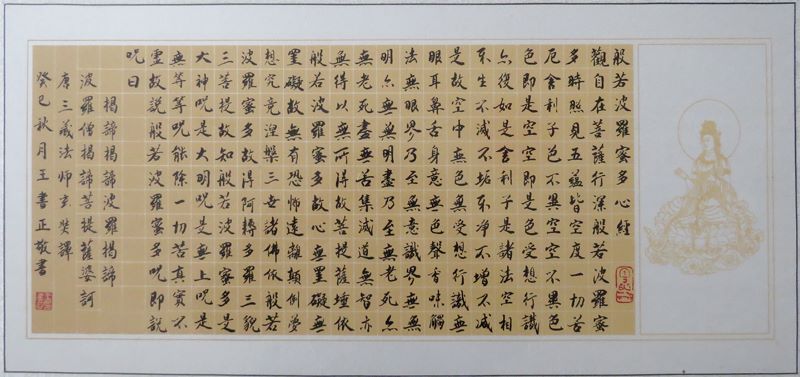 般若波羅蜜多心經
觀自在菩薩行深般若波羅蜜
多時照見五蘊皆空度一切苦
厄舍利子色不異空空不異色
色即是空空即是色受想行識
亦復如是舍利子是諸法空相
不生不滅不垢不淨不增不減
是故空中無色無受想行識無
眼耳鼻舌身意無色聲香味觸
法無眼界乃至無意識界無無
明亦無無明盡乃至無老死亦
無老死盡無苦集滅道無智亦
無得以無所得故菩提薩埵依
般若波羅蜜多故心無罣礙無
罣礙故無有恐怖遠離顛倒夢
想究竟涅槃三世諸佛依般若
波羅蜜多故得阿耨多羅三藐
三菩提故知般若波羅蜜多是
大神呪是大明呪是無上呪是
無等等呪能除一切苦真實不
虛故說般若波羅蜜多呪即說
呪曰
揭諦揭諦波羅揭諦
波羅僧揭諦菩提薩婆訶
唐三藏法師玄奘譯
癸巳秋月王書正敬書